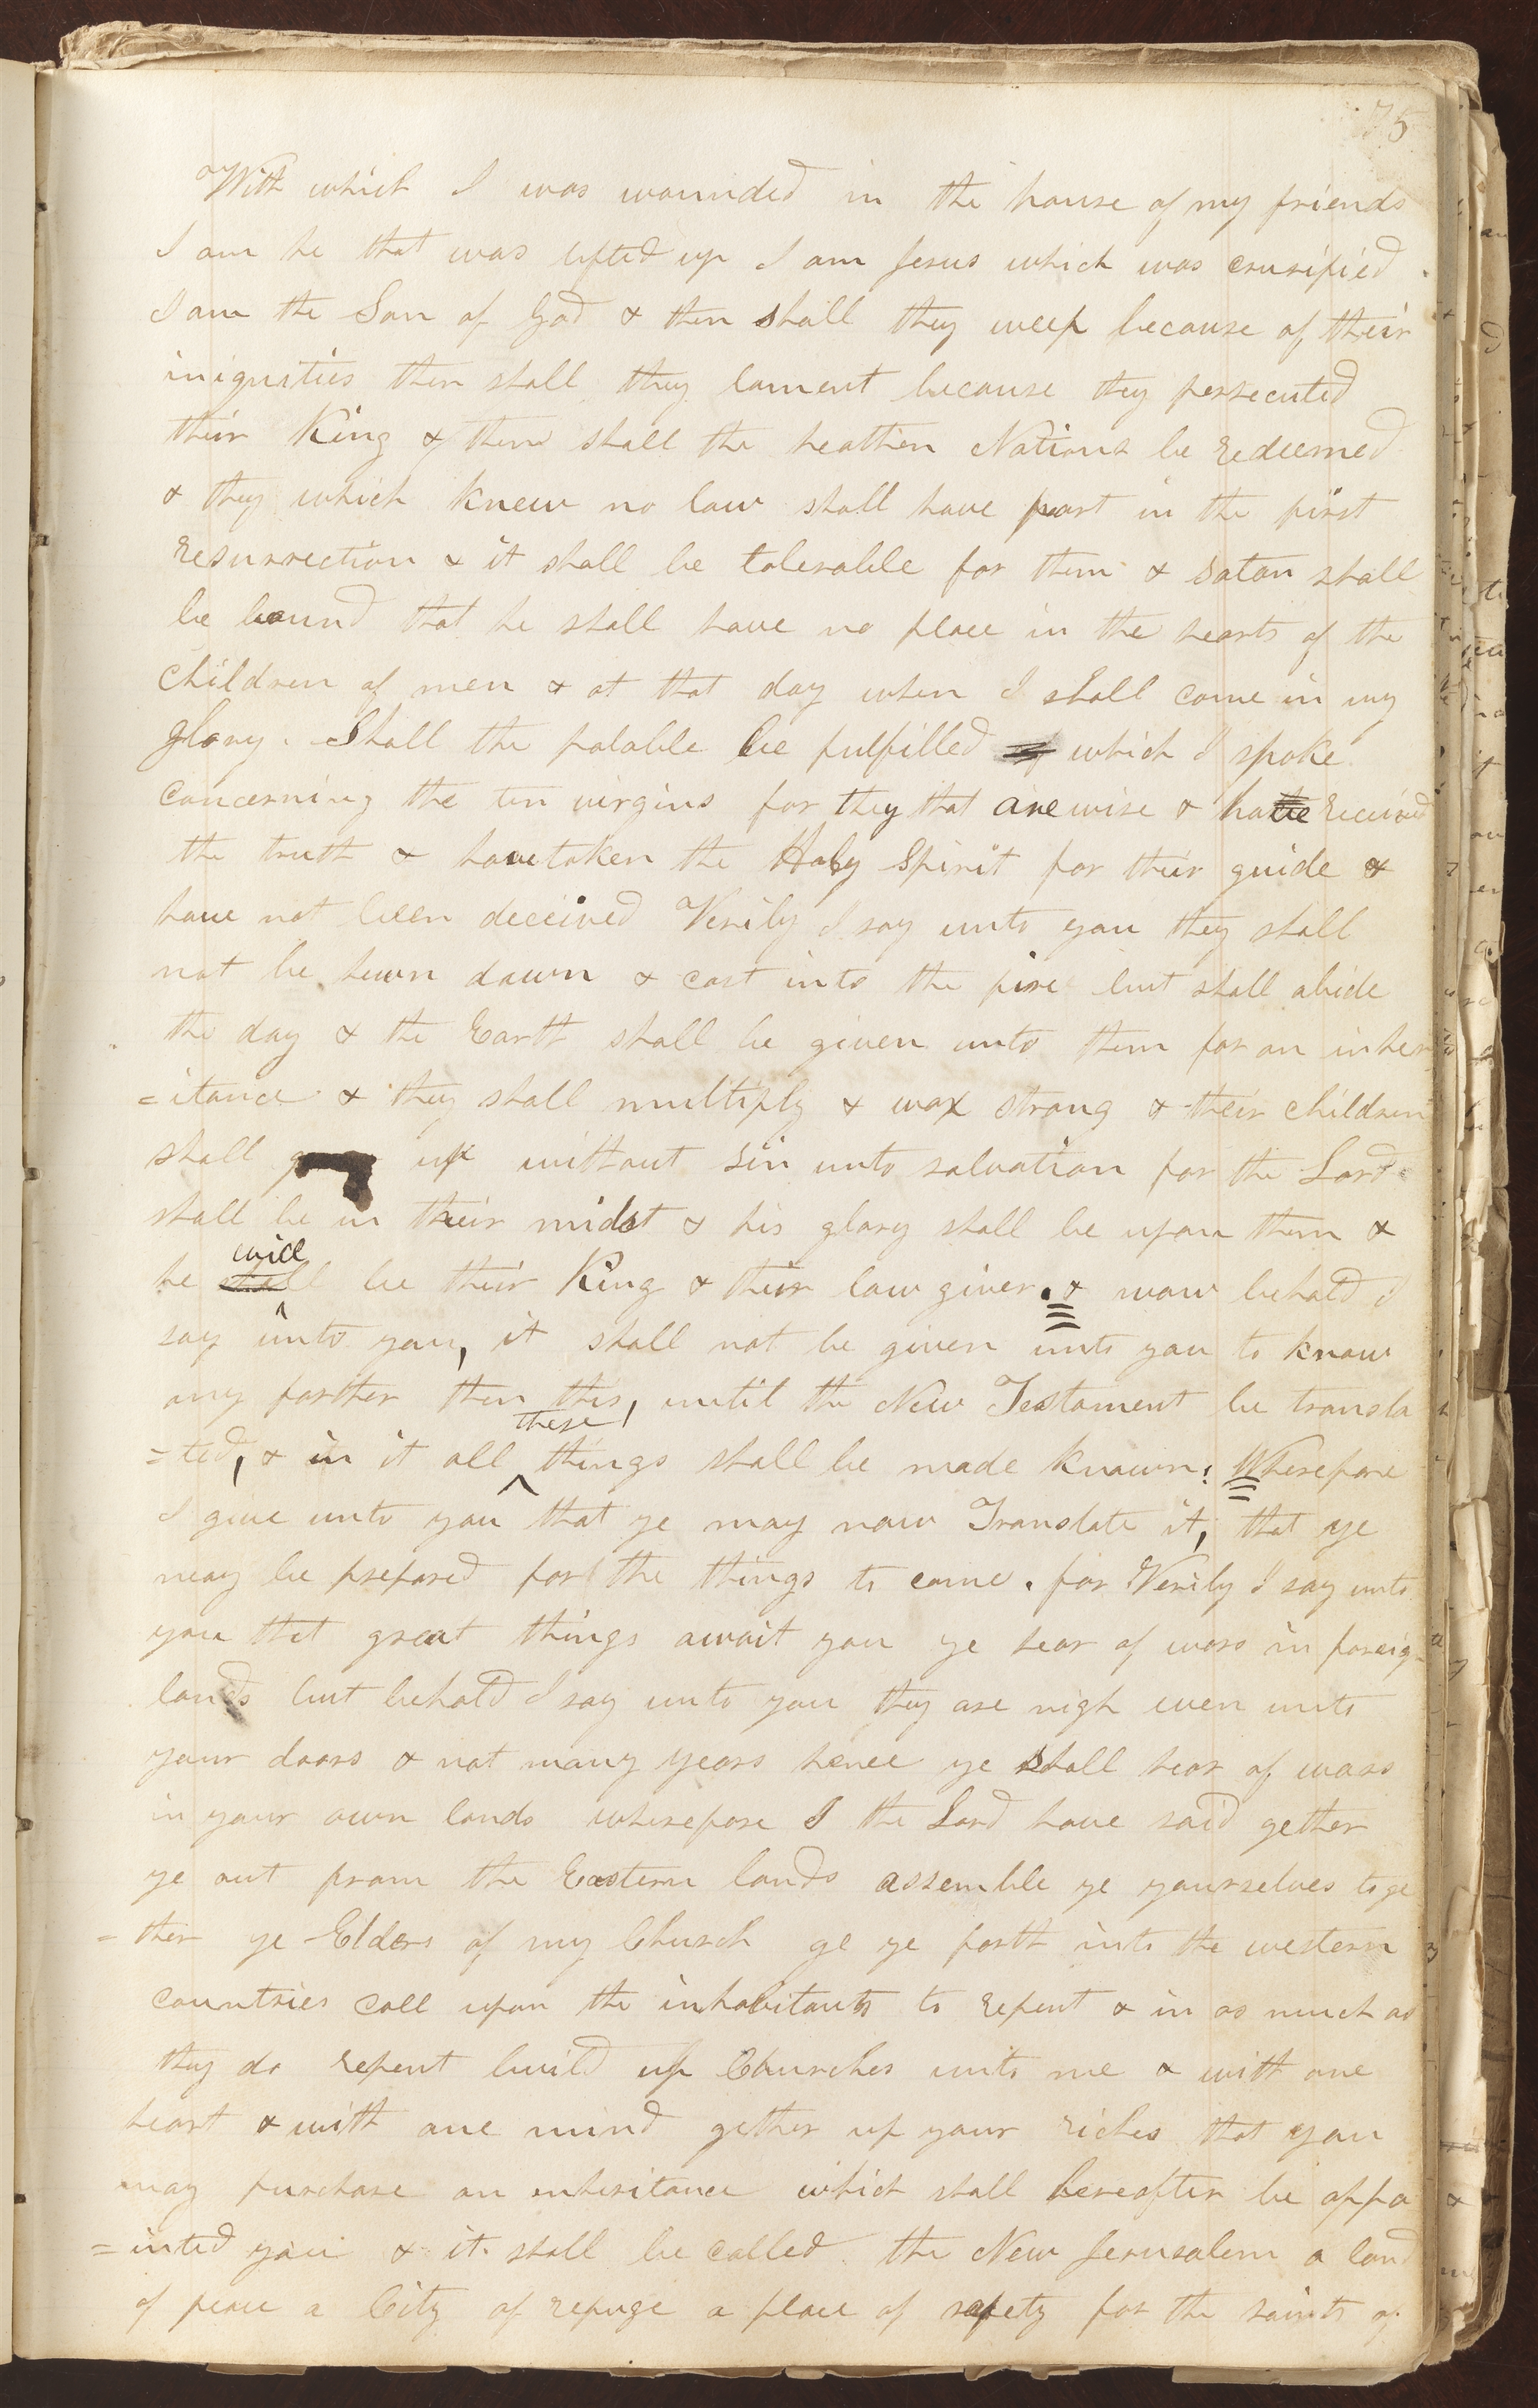 75
With which I was wounded in the house of my friends
I am he that was lifted up I am Jesus which was crusified
I am the Son of God & then shall they weep because of their
iniquities then shall they lament because they persecuted
their King & then shall the heathen Nations be redeemed
& they which knew no law shall have part in the first
resurrection & it shall be tolerable for them & Satan shall
be bound that he shall have no place in the hearts of the
children of men & at that day when I shall come in my
glory. Shall the parable be fulfilled which I spoke
concerning the ten virgins for they that are wise & have received
the truth & have taken the Holy Spirit for their guide &
have not been deceived Verily I say unto you they shall
not be hewn down & cast into the fire but shall abide
the day & the Earth shall be given unto them for an inher
=itance & they shall multiply & wax strong & their children
shall up without sin unto salvation for the Lord
shall be in their midst & his glory shall be upon them &
will
he shall be their King & their law giver. & now behold I
say unto you, it shall not be given unto you to know
any farther then this, until the New Testament be transla
these
=ted, & in it all things shall be made known; Wherefore
I give unto you that ye may now Translate it, that ye
may be prepared for the things to come. for Verily I say unto
you that great things await you ye hear of wars in foreig
lands but behold I say unto you they are nigh even unto
your doors & not many years hence ye shall hear of wars
in your own lands wherefore I the Lord have said gether
ye out from the Eastern lands assemble ye yourselves toge
=ther ye Elders of my Church ge ye forth into the western
countries call upon the inhabitants to repent & in as much as
they do repent build up Churches unto me & with one
heart & with one mind gether up your riches that you
may purchase an inheritance which shall hereafter be appo
=inted you & it shall be called the New Jerusalem a land
of peace a City of refuge a place of safety for the saints of